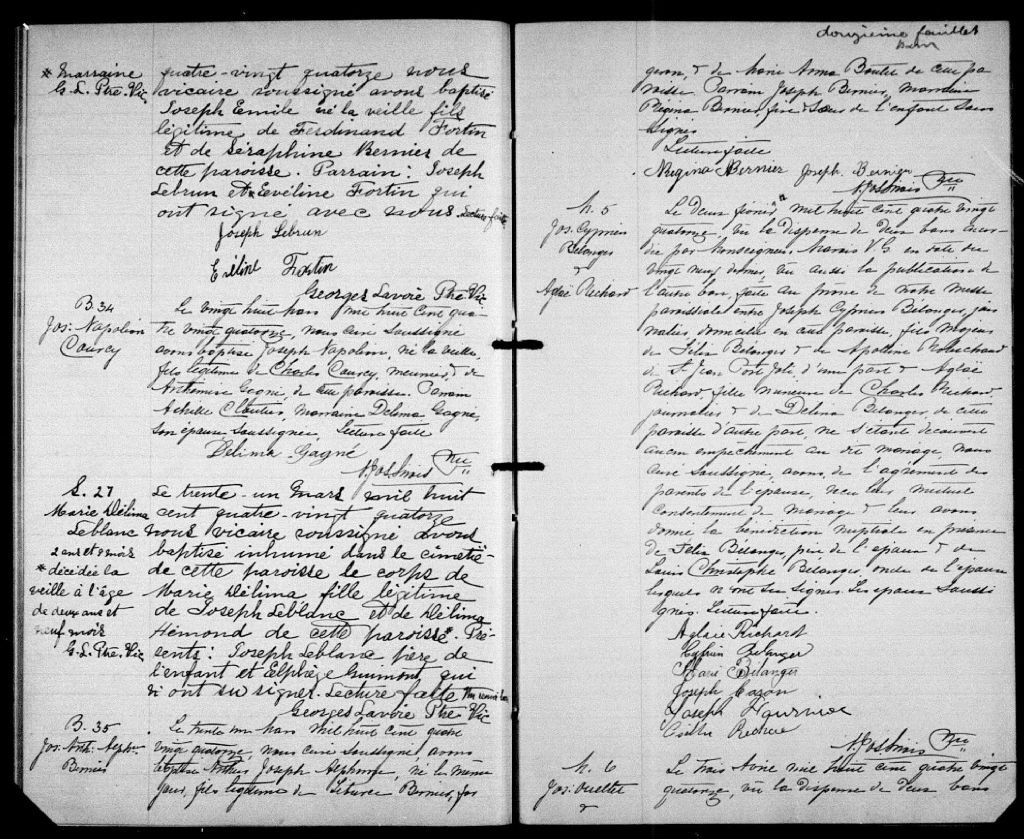 * Marraine
G. L. Ptre. Vic.
quatre-vingt quatorze nous
vicaire soussigné avons baptisé
Joseph Emile né la veille fils
légitime de Ferdinand Fortin
et de Séraphine Bernier de
cette paroisse. Parrain: Joseph
Lebrun et* Eveline Fortin qui
ont signé avec nous. Lecture faite
Joseph Lebrun
Fortin
Georges Lavoie Ptre Vic
B. 34
Jos: Napoléon
Courcy
Le vingt huit Mars mil huit cent qua-
tre vingt quatorze, nous curé soussigné
avons baptisé Joseph Napoléon, né la veille,
fils légitime de Charles Courcy, meunier, & de
Arthémise Gagné, de cette paroisse. Parrain
Achille Cloutier, Marraine Delima Gagné,
son épouse soussignée. Lecture faite
Delima Gagné
Ptre
S. 27
Marie Délima
Leblanc
2 ans et 9 mois
* décédée la
veille à l'âge
de deux ans et
neuf mois
G. L. Ptre. Vic
Le trente-un Mars mil huit
cent quatre-vingt quatorze
nous vicaire soussigné avons
baptisé inhumé dans le cimetiè-
de cette paroisse le corps de
Marie Délima fille légitime
de Joseph Leblanc et de Délima
Hémond de cette paroisse*. Pré-
sents: Joseph Leblanc père de
l'enfant et Elphège Guimont qui
n'ont su signer. Lecture faite
Georges Lavoie Ptre Vic
B. 35
Jos: Anth: Alph:
Bernier
Le trente un Mars mil huit cent quatre
vingt quatorze, nous curé soussigné, avons
baptisé Arthur Joseph Alphonse, né le même
jour, fils légitime de Bernier, for
douzieme feuillet
geron, & de Marie Anna de cette pa
roisse. Parrain Joseph Bernier, Marraine
Régina Bernier, frère & soeur de l'enfant sous
signés
Lecture faite
Régina Bernier Joseph Bernier
Ptre
M. 5
Jos. Cyprien
Bélanger
&
Aglaé Richard
Le Deux mil huit cent quatre vingt
quatorze, vu la dispense de deux bans accor-
dée par Monseigneur Marais V.G. en date du
vingt neuf dernier, vu aussi la publication de
l'autre ban, faite au prône de notre messe
paroissiale entre Joseph Cyprien Bélanger, jour
nalier, domicilié en cette paroisse, fils majeur
de Félix Bélanger & de Apolline Robichaud
de St Jean Port Joli d'une part & Aglaé
Richard, fille mineure de Charles Richard,
journalier & de Delima Bélanger, de cette
paroisse d'autre part, ne s'étant découvert
aucun empêchement au dit mariage, nous
curé soussigné, avons, de l'agrément des
parents de l'épouse, reçu leur mutuel
consentement de mariage & leur avons
donné la bénédiction nuptiale en présence
de Félix Bélanger, père de l'époux & de
Louis Christophe Bélanger oncle de l'époux
lesquels n'ont su signer. Les époux Soussi
gnés. Lecture faite.
Aglaie Richard
Cyprien Bélanger
Marie Bélanger
Joseph Caron
Joseph Fournier
Ptre
M. 6
Jos: Ouellet
&
Le trois Avril mil huit cent quatre vingt
quatorze, vu la dispense de deux bans